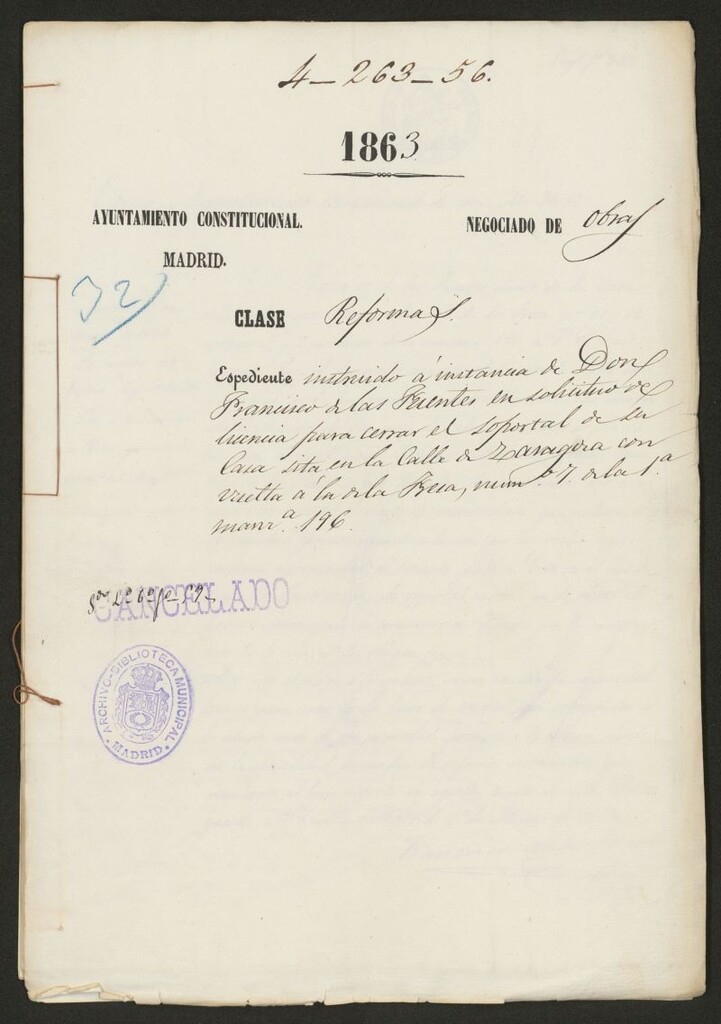 4-263-56.
1863
AYUNTAMIENTO CONSTITUCIONAL.
MADRID.
NEGOCIADO DE obras
32
CLASE Reformas.
Espediente instruido á instancia de Don
Francisco de las Fuentes en solicitud de
licencia para cerrar el soportal de su
Casa sita en la Calle de Zaragoza con
vuelta á la de la Fresa, num.º 7. de la 1.ª
manz.ª 196.
CANCELADO
ARCHIVO-BIBLIOTECA MUNICIPAL
MADRID